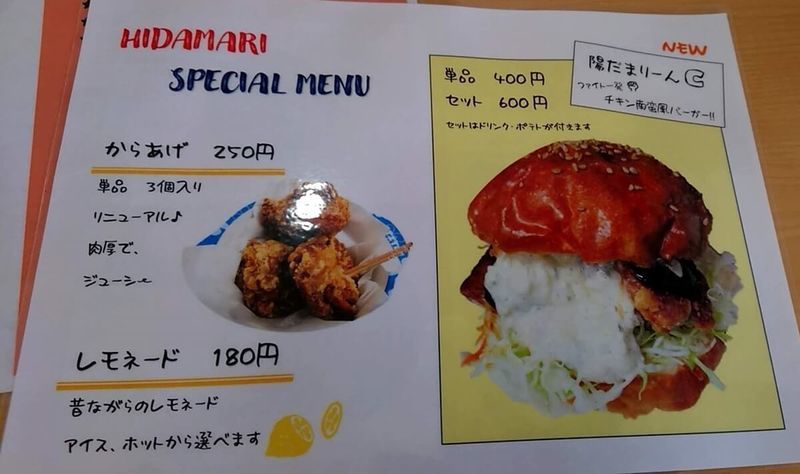 HIDAMARI
SPECIAL MENU
からあげ 250円
単品 3個入り
リニューアル♪
肉厚で、
ジューシー
レモネード 180円
昔ながらのレモネード
アイス、ホットから選べます
NEW
陽だまりーんC
ファイト一発
チキン南蛮風バーガー!!
単品 400円
セット 600円
セットはドリンク・ポテトが付えます